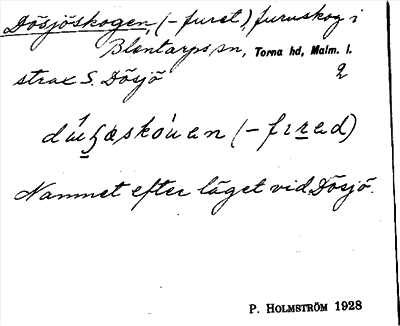 Dösjöskogen, (-furet), furuskog i
Blentarps sn, Torna hd, Malm. l.
strax S. Dösjö 2
(-fɪred)
Namnet efter läget vid Dösjö.
P. HOLMSTRÖM 1928